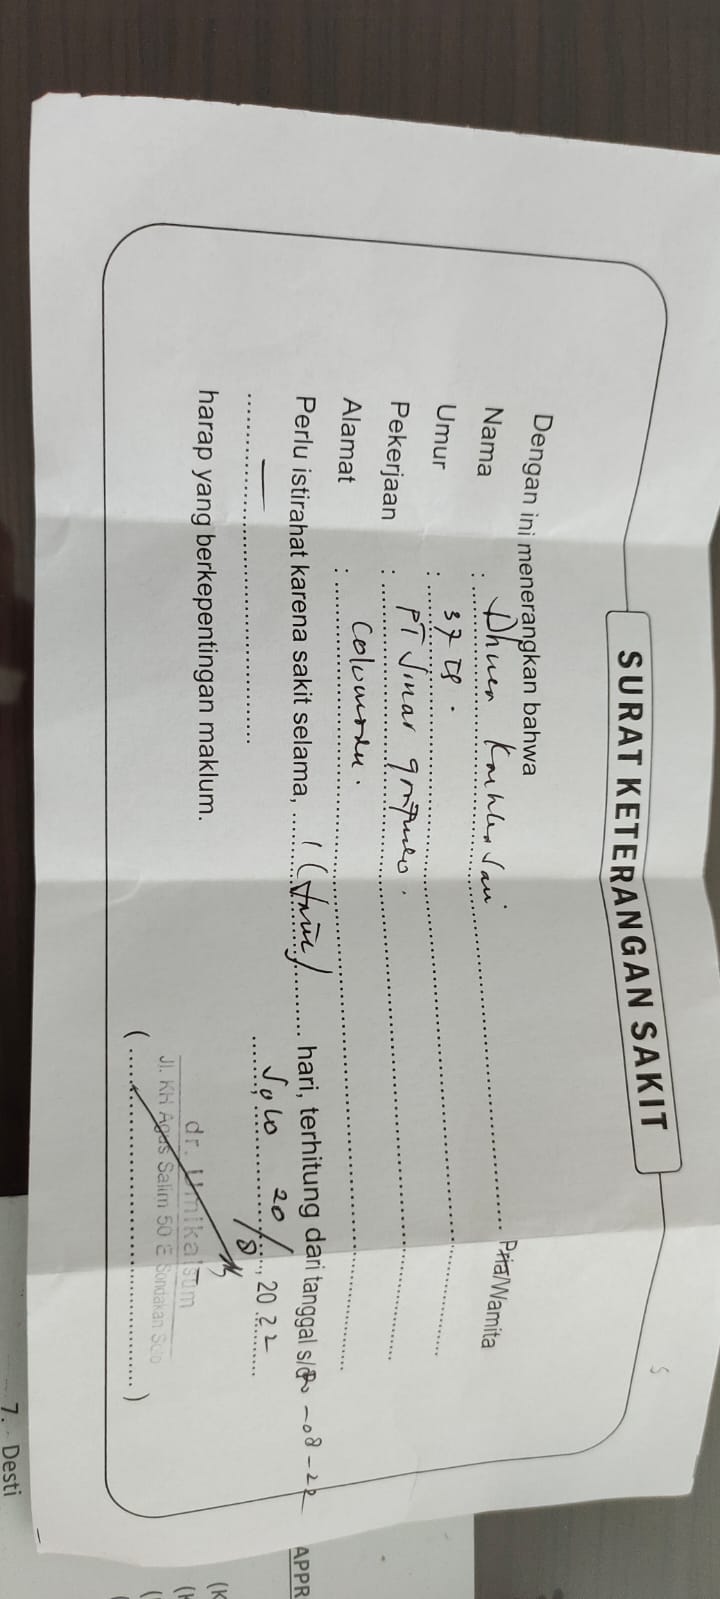 SURAT KETERANGAN SAKIT
Dengan ini menerangkan bahwa
Nama : Sari Pria/Wamita
Umur : 37 th.
Pekerjaan : PT Sinar
Alamat : Colomadu.
Perlu istirahat karena sakit selama, 1 (satu) hari, terhitung dari tanggal s/d 20-08-22
Solo 20/8, 2022
harap yang berkepentingan maklum.
dr. Umikalsum
Jl. KH Agus Salim 50 E Sondakan Solo
( )
APPR
7. Desti